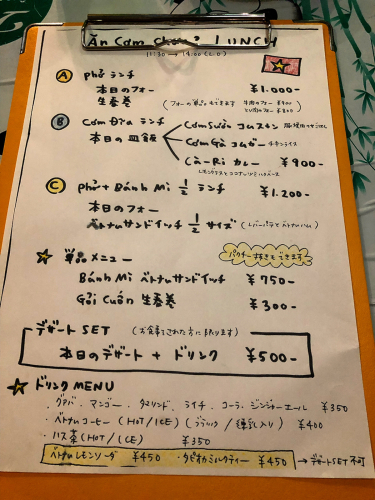 Ăn Cơm Chưa? LUNCH
11:30 → 14:00 (L.O)
Ⓐ phở ランチ
本日のフォー ¥1.000-
生春巻 (フォーの単品もできます 牛肉のフォー ¥900
とり肉のフォー ¥800)
Ⓑ Cơm Đĩa ランチ
本日の皿飯
Cơm Sườn コムスオン
Cơm Gà コムガー チキンライス
Cà-Ri カレー ¥900-
レモングラスとココナッツミルクベース
Ⓒ phở + Bánh Mì ½ ランチ ¥1.200-
本日のフォー
ベトナムサンドイッチ ½ サイズ (レバーパテとベトナムハム)
パクチー抜きもできます
★ 単品メニュー
Bánh Mì ベトナムサンドイッチ ¥750-
Gỏi Cuốn 生春巻 ¥300-
デザートSET (お食事された方に限ります)
本日のデザート + ドリンク ¥500-
★ ドリンク MENU
・グァバ・マンゴー・タマリンド・ライチ・コーラ・ジンジャーエール ¥350
・ベトナムコーヒー (HOT/ICE) (ブラック/練乳入り) ¥400
・ハス茶 (HOT/ICE) ¥350
ベトナムレモンソーダ ¥450 ・タピオカミルクティー ¥450 → デザートSET不可